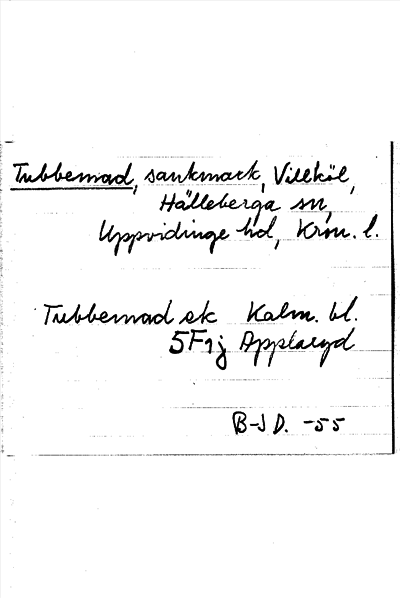 Tubbemad, sankmark, Villköl,
Hälleberga sn,
Uppvidinge hd, Kron. l.
Tubbemad ek Kalm. bl.
5F1j Applaryd
B-J D. -55